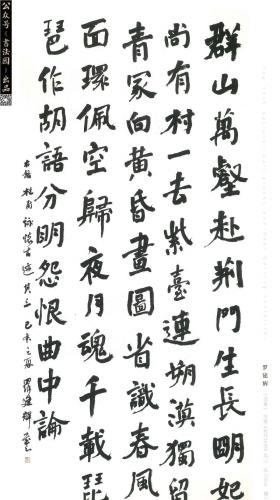 群山萬壑赴荆門生長明妃
尚有村一去紫臺連朔漠獨留
青冢向黄昏畫圖省識春風
面環佩空歸夜月魂千載琵
琶作胡語分明怨恨曲中論
右錄杜甫詠懷古迹其三 己未之夏
公众号《书法园》出品